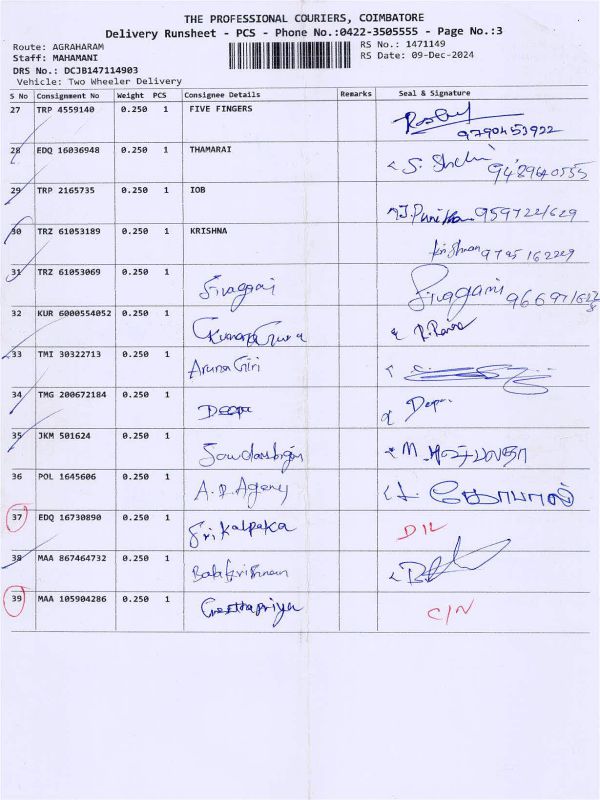 THE PROFESSIONAL COURIERS, COIMBATORE
Delivery Runsheet - PCS - Phone No.:0422-3505555 - Page No.:3
Route: AGRAHARAM RS No.: 1471149
Staff: MAHAMANI RS Date: 09-Dec-2024
DRS No.: DCJB147114903
Vehicle: Two Wheeler Delivery
S No Consignment No Weight PCS Consignee Details Remarks Seal & Signature
27 TRP 4559140 0.250 1 FIVE FINGERS
9790453922
28 EDQ 16036948 0.250 1 THAMARAI
9489640555
29 TRP 2165735 0.250 1 IOB
9597221629
30 TRZ 61053189 0.250 1 KRISHNA
Krishnan 9795162229
31 TRZ 61053069 0.250 1 Sivagami Sivagami
32 KUR 6000554052 0.250 1
33 TMI 30322713 0.250 1 Aruna Giri
34 TMG 200672184 0.250 1 Deepa
35 JKM 501624 0.250 1
36 POL 1645606 0.250 1 A.P. Agency
37 EDQ 16730890 0.250 1 Sri Kalpaka D/L
38 MAA 867464732 0.250 1 Balakrishnan
39 MAA 105904286 0.250 1 C/N